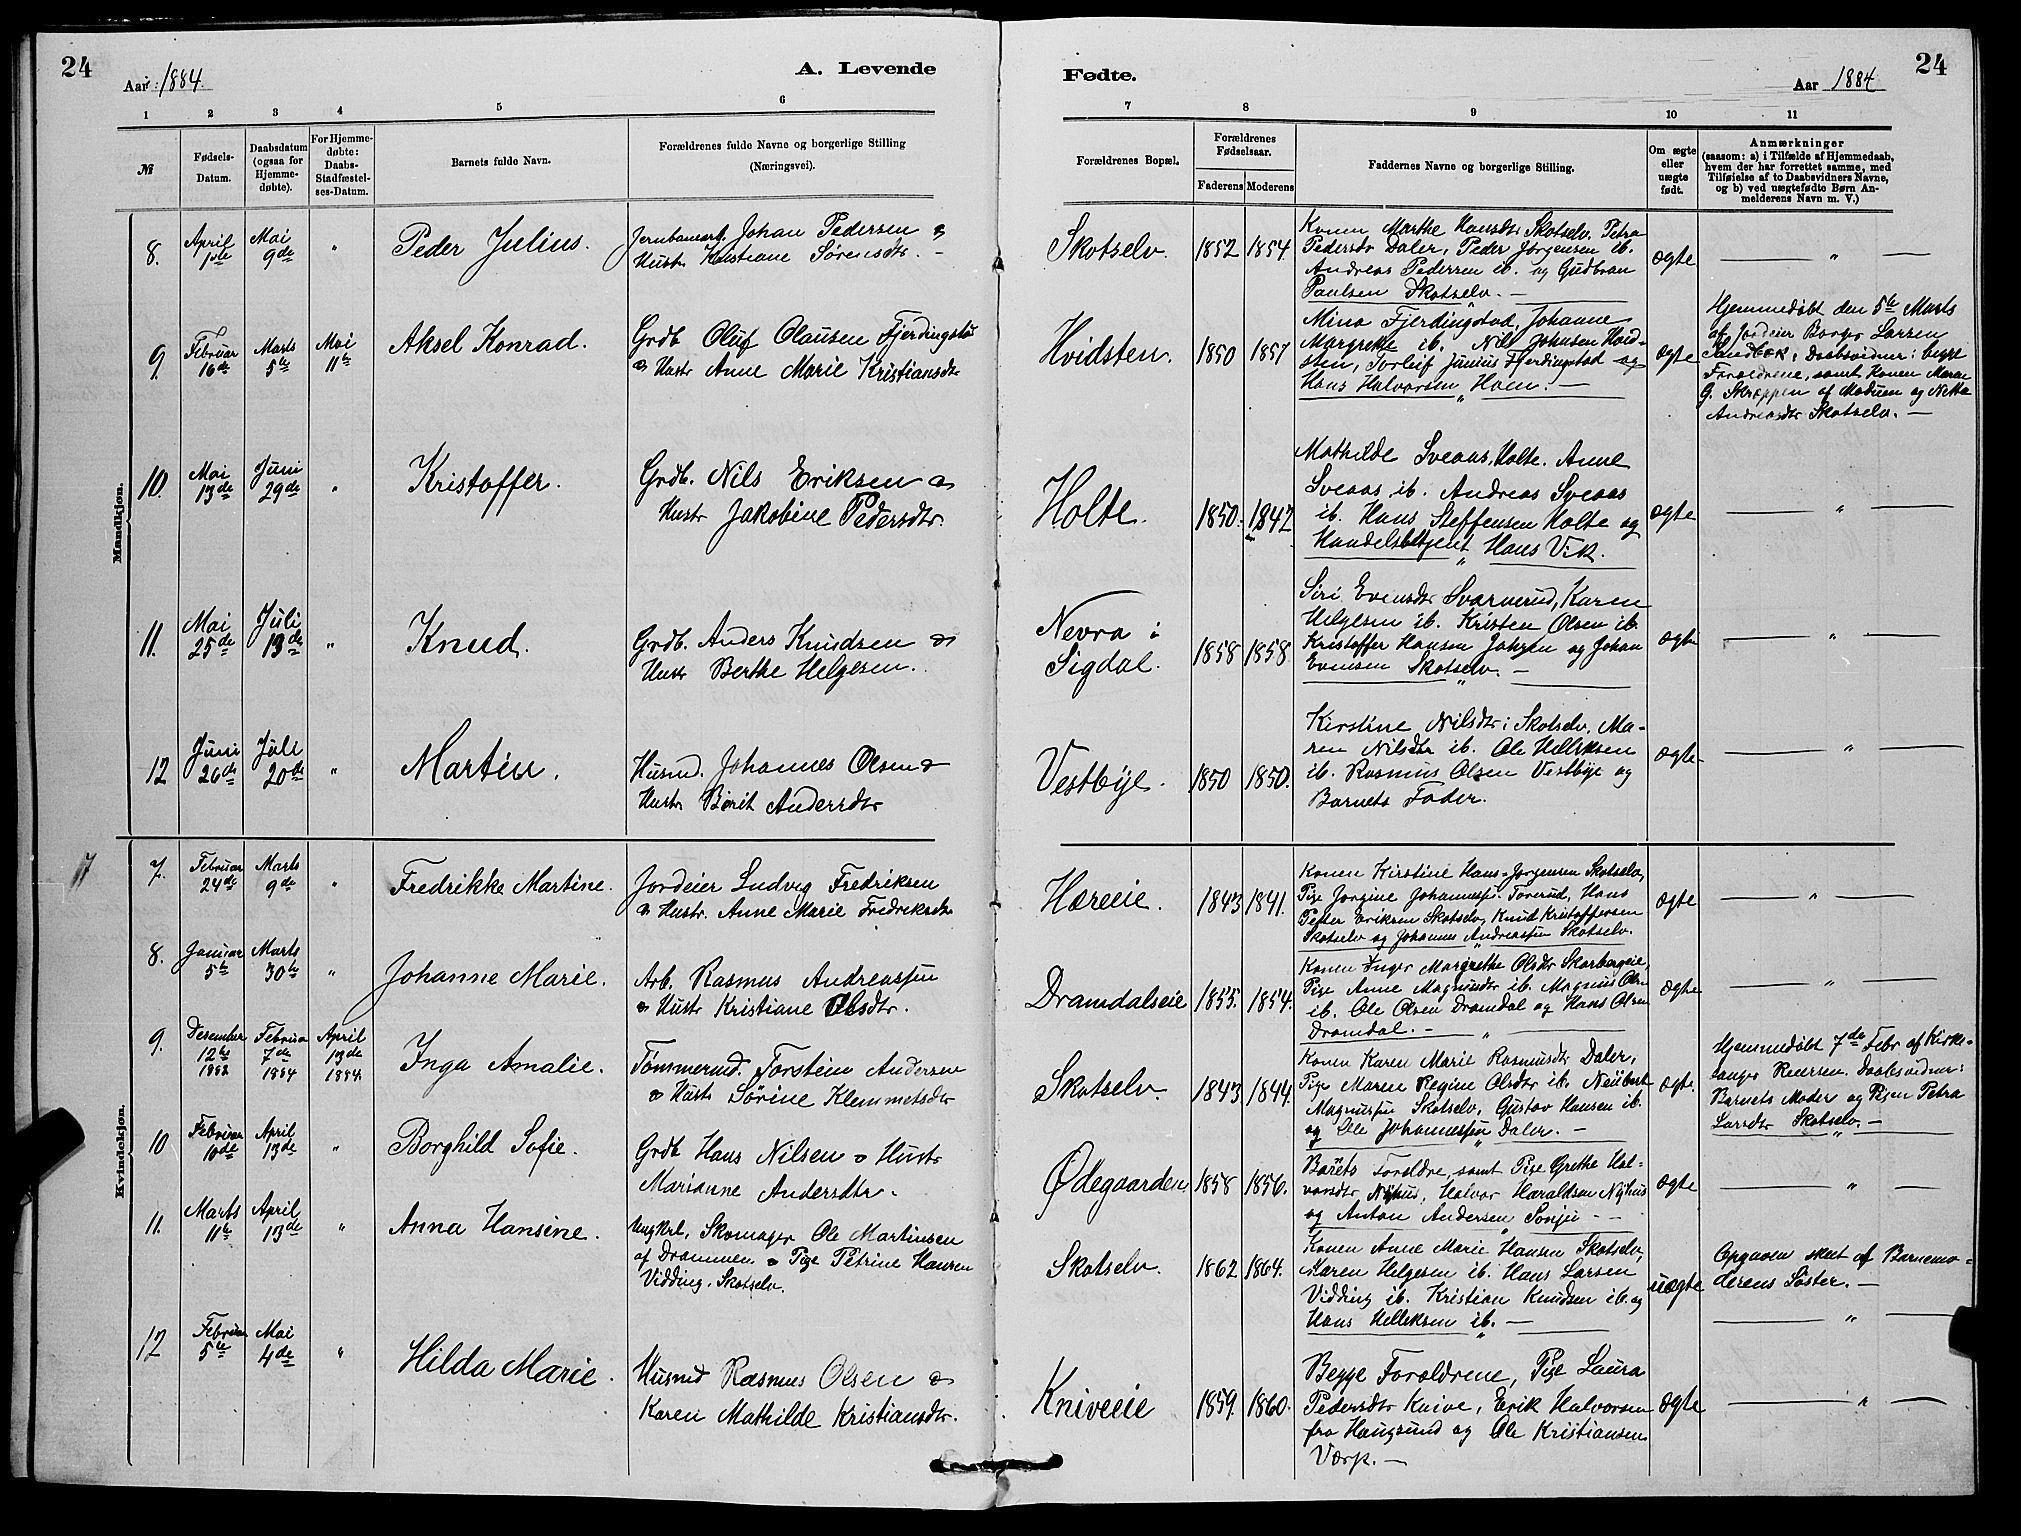 24
Aar 1884.
A. Levende
Fødte.
Aar 1884
24
1 2 3 4 5 6 7 8 9 10 11
№
Fødsels-Datum.
Daabsdatum (ogsaa for Hjemme-døbte).
For Hjemme-døbte: Daabs-Stadfæstel-ses-Datum.
Barnets fulde Navn.
Forældrenes fulde Navne og borgerlige Stilling
(Næringsvei).
Forældrenes Bopæl.
Forældrenes Fødselsaar.
Faderens Moderens
Faddernes Navne og borgerlige Stilling.
Om ægte eller uægte født.
Anmærkninger
(saasom: a) i Tilfælde af Hjemmedaab,
hvem der har forrettet samme, med
Tilføielse af to Daabsvidners Navne,
og b) ved uægtefødte Børn An-
melderens Navn m. V.)
Mandkjøn.
8. April 1ste Mai 9de " Peder Julius.
Jernbanearb. Johan Pedersen &
Hustr. Kristiane Sørensdtr. -
Skotselv. 1852 1854
Konen Marthe Hansdtr Skotselv, Petra
Pedersdtr Daler, Peder Jørgensen ib.
Andreas Pedersen ib. og Gudbran
Paulsen Skotselv. -
ægte "
9. Februar 16de Marts 5te Mai 11te Aksel Konrad.
Grdb Oluf Olausen Fjerdingstad
& Hustr Anne Marie Kristiansdtr
Hvidsten. 1850 1857
Mina Fjerdingstad, Johanne
Margrethe ib. Nils Johnsen Hvid-
sten, Torleif Junius Fjerdingstad og
Hans Halvorsen Hoen. -
ægte
Hjemmedøbt den 5te Marts
af Jordeier Borger Larsen
Sandbæk, Daabsvidner: begge
Forældrene, samt Konen Maren
G. Skroppen af Modum og Netta
Andreasdtr Skotselv. -
10. Mai 13de Juni 29de " Kristoffer.
Grdb. Nils Eriksen &
Hustr Jakobine Pedersdtr.
Holte. 1850. 1842
Mathilde Sveaas, Holte. Anne
Sveaas ib. Andreas Sveaas
ib. Hans Steffensen Holte og
Handelsbetjent Hans Vik.
ægte "
11. Mai 25de Juli 13de " Knud.
Grdb. Anders Knudsen &
Hustr Berthe Helgesen.
Nevra i
Sigdal. 1858 1858
Siri Evensdtr Svarverud, Karen
Helgesen ib. Kristen Olsen ib.
Kristoffer Hansen Johren og Johan
Evensen Skotselv. -
ægte "
12 Juni 26de Juli 20de " Martin.
Husmd. Johannes Olsen &
Hustr Børit Andersdtr
Vestbye. 1850 1850.
Kirstine Nilsdtr: Skotselv, Ma-
ren Nilsdtr ib. Ole Helliksen
ib. Rasmus Olsen Vestbye og
Barnets Fader.
ægte "
Kvindekjøn.
7. Februar 24de Marts 9de " Fredrikke Martine.
Jordeier Ludvig Fredriksen
& Hustr. Anne Marie Fredriksdtr
Hæreie. 1843 1841.
Konen Kirstine Hans-Jørgensen Skotselv,
Pige Jørgine Johannesen Torerud, Hans
Peter Eriksen Skotselv, Knud Kristoffersen
Skotselv og Johannes Andreassen Skotselv.
ægte "
8. Januar 5te Marts 30te " Johanne Marie.
Arb. Rasmus Andreassen
& Hustr Kristiane Olsdtr.
Dramdalseie 1855. 1854.
Konen Inger Margrethe Olsdtr Skarbergeie,
Pige Anne Magnusdtr ib. Magnus Olsen
ib. Ole Olsen Dramdal og Hans Olsen
Dramdal. -
ægte "
9. Desember 12te 1883 Februar 7de 1884 April 13de 1884. Inga Amalie.
Tømmermd. Torstein Andersen
& Hustr Sørine Klemmetsdtr
Skotselv. 1843 1844.
Konen Karen Marie Rasmusdtr Daler,
Pige Maren Regine Olsdtr ib. Neübert
Magnussen Skotselv, Gustav Hansen ib.
og Ole Johannessen Daler. -
ægte.
Hjemmedøbt 7de Febr af Kirke-
sanger Reiersen. Daabsvidner:
Barnets Moder og Pigen Petra
Larsdtr Skotselv. -
10 Februar 10de April 13de " Borghild Sofie.
Grdb Hans Nilsen & Hustr
Marianne Andersdtr.
Ødegaarden 1858 1856.
Barets Forældre, samt Pige Grethe Hal-
vorsdtr Nyhus, Halvor Haraldsen Nyhus
og Anton Andersen Sonju -
ægte "
11. Marts 11te April 13de " Anna Hansine.
Ungkrl. Skomager Ole Martinsen
af Drammen & Pige Petrine Hansen
Vidding, Skotselv.
Skotselv. 1862 1864.
Konen Anne Marie Hansen Skotselv,
Maren Helgesen ib. Hans Larsen
Vidding ib. Kristian Knudsen ib. og
Hans Helliksen ib. -
uægte
Opgaven skeet af Barnemo-
derens Søster. -
"
12 Februar 5te Mai 4de " Hilda Marie.
Husmd Rasmus Olsen &
Karen Mathilde Kristiansdtr.
Kniveeie 1859. 1860.
Begge Forældrene, Pige Laura
Pedersdtr Knive, Erik Halvorsen
fra Haugsund og Ole Kristiansen
Værp. -
ægte "